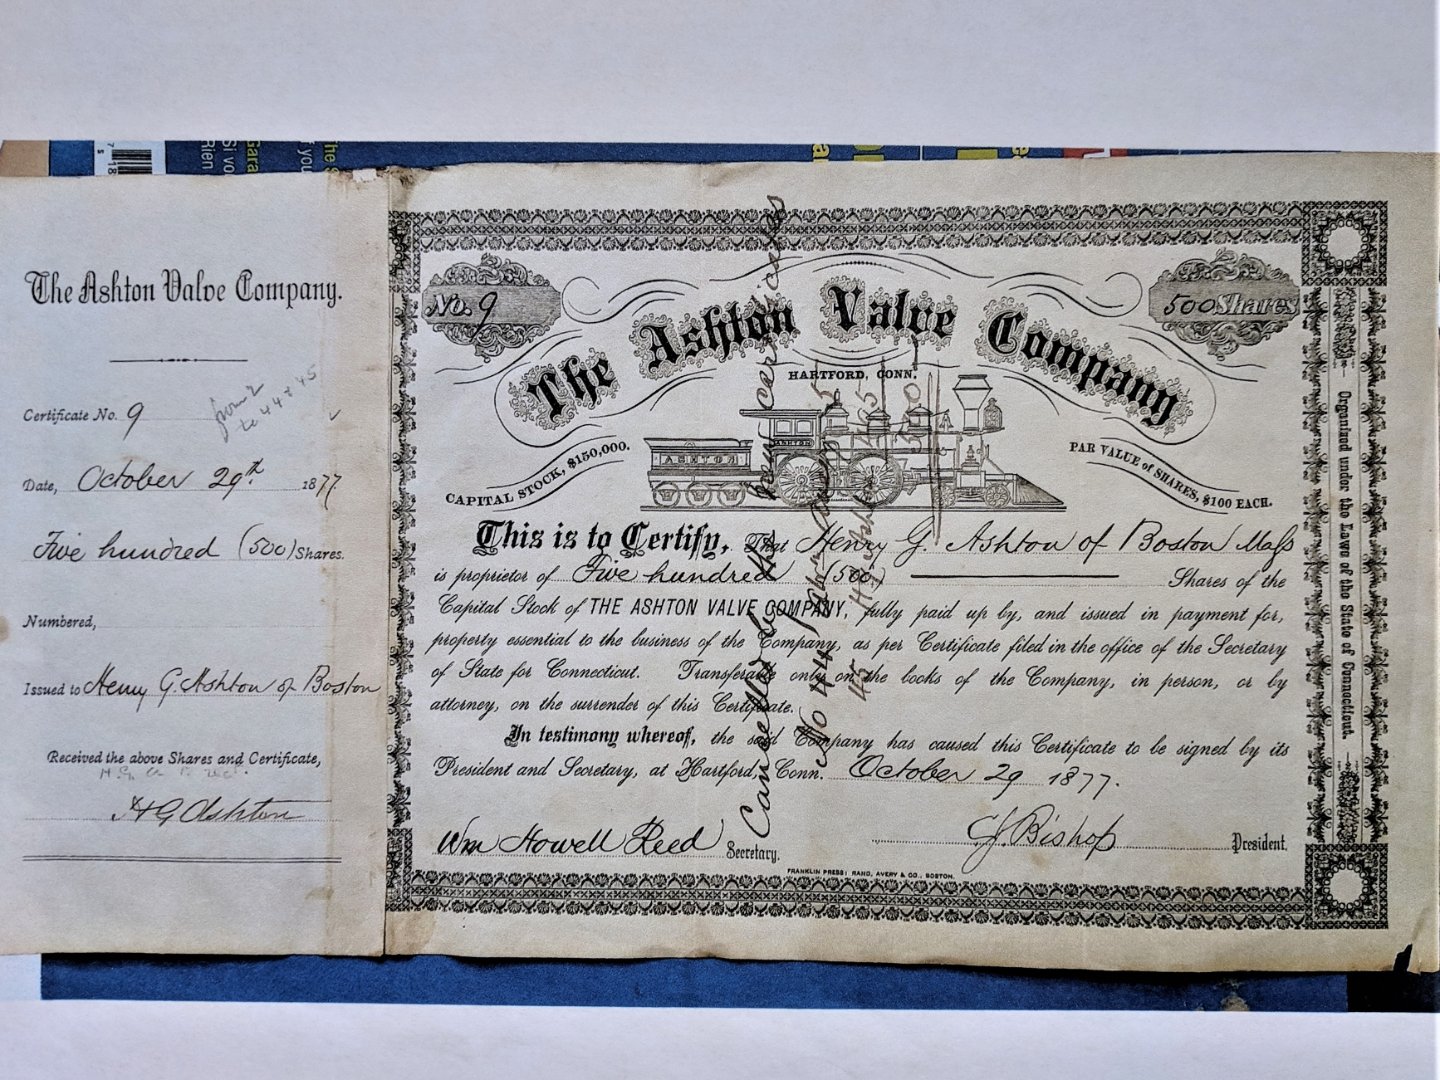 The Ashton Valve Company.
Certificate No. 9
from 2
to 44 & 45
Date, October 29th 1877
Five hundred (500) Shares.
Numbered,
Issued to Henry G. Ashton of Boston
Received the above Shares and Certificate,
H G Ashton
No. 9
500 Shares
The Ashton Valve Company
HARTFORD, CONN.
ASHTON
ASHTON
CAPITAL STOCK, $150,000.
PAR VALUE of SHARES, $100 EACH.
This is to Certify, That Henry G. Ashton of Boston Mass
is proprietor of Five hundred (500) Shares of the
Capital Stock of THE ASHTON VALVE COMPANY, fully paid up by, and issued in payment for,
property essential to the business of the Company, as per Certificate filed in the office of the Secretary
of State for Connecticut. Transferable only on the books of the Company, in person, or by
attorney, on the surrender of this Certificate.
In testimony whereof, the said Company has caused this Certificate to be signed by its
President and Secretary, at Hartford, Conn. October 29 1877.
Wm Howell Reed Secretary.
C J. Bishop President.
FRANKLIN PRESS: RAND, AVERY & CO., BOSTON.
Organized under the Laws of the State of Connecticut.
Cancelled by new certificates
No 44
45